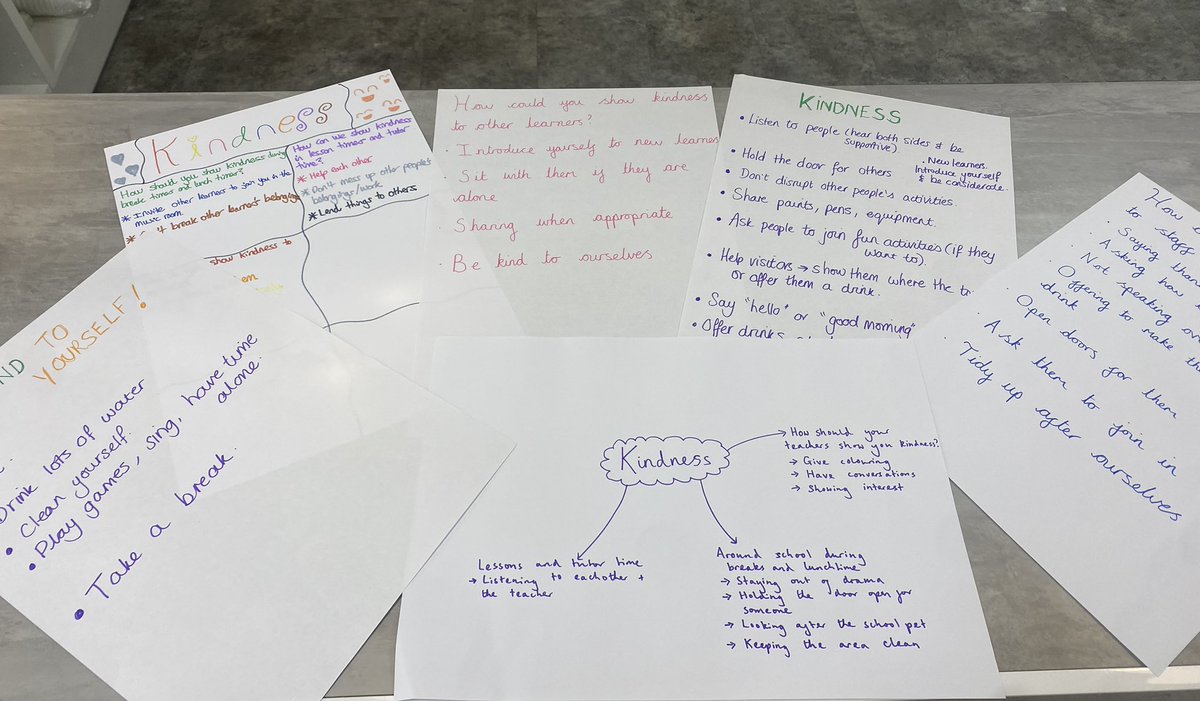 Kindness
How should you show kindness during
break times and lunch times?
* Invite other learners to join you in the
music room.
break other learner's belongings
How can we show kindness
in lesson times and tutor
time?
* Help each other
* Don't mess up other peoples
belongings/work.
* Lend things to others
show kindness to
How could you show kindness
to other learners?
· Introduce yourself to new learners
· Sit with them if they are
alone
· Sharing when appropriate
· Be kind to ourselves
KINDNESS
• Listen to people (hear both sides & be
supportive)
• Hold the door for others
• New learners.
Introduce yourself
& be considerate.
• Don't disrupt other people's activities.
• Share paints, pens, equipment.
• Ask people to join fun activities (if they
want to).
• Help visitors → show them where the
or offer them a drink.
• Say "hello" or "good morning"
• Offer drinks
How
to staff
· Saying
· Asking how
· Not speaking
· Offering to make
drink
· Open doors for them
· Ask them to join in
· Tidy up after ourselves
TO
YOURSELF!
Drink lots of water
• Clean yourself.
• Play games, sing, have time
alone.
• Take a break.
Kindness
How should your
teachers show you kindness?
→ Give colouring
→ Have conversations
→ Showing interest
Lessons and tutor time
→ Listening to eachother +
the teacher
Around school during
breaks and lunchtime
→ Staying out of drama
→ Holding the door open for
someone
→ Looking after the school pet
→ Keeping the area clean